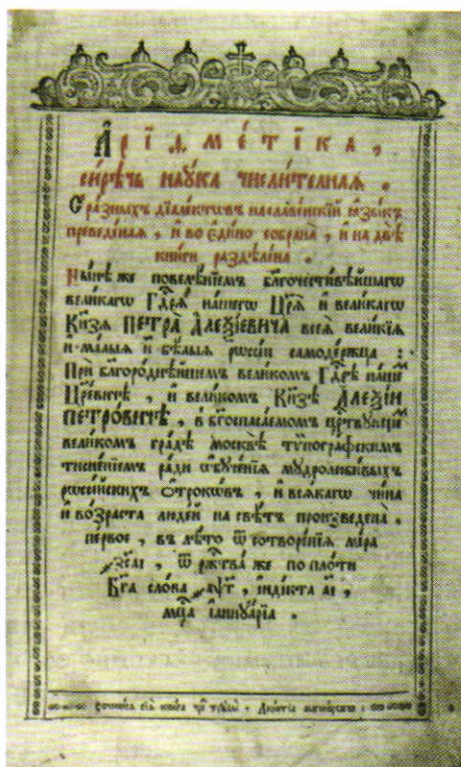 А҆ріѳмéтіка,
си́рѣчь наꙋка числи́телнаѧ.
С ра́зныхъ дїале́ктѡвъ на славе́нскїй ꙗ҆зы́къ
преведе́наѧ, и҆ во є҆ди́но собрана̀, и҆ на двѣ̀
кни́ги раздѣле́на.
Ны́нѣ же повелѣ́нїемъ бл҃гочести́вѣйшагѡ
вели́кагѡ Гдⷭ҇рѧ̀ на́шегѡ Цр҃ѧ̀ и҆ вели́кагѡ
Кн҃зѧ ПЕТРА̀ А҆ЛЕѮІ́ЕВИЧА всеѧ̀ вели́кїѧ
и҆ ма́лыѧ и҆ бѣ́лыѧ рѡссі́и самоде́ржца :
При бл҃горо́днѣйшемъ вели́комъ Гдⷭ҇рѣ̀ на́шемъ
Цр҃е́вичѣ, и҆ вели́комъ Кн҃зѣ А҆ЛЕѮІ́И
ПЕТРО́ВИЧѢ, в бг҃оспаса́емомъ црⷭ҇твꙋющемъ
вели́комъ гра́дѣ москвѣ̀ тѷпогра́фскимъ
тисне́нїемъ ради ѡ҆бꙋче́нїѧ мꙋдролюби́выхъ
рѡссі́йскихъ ѻ҆́трокѡвъ, и҆ всѧ́кагѡ чи́на
и҆ во́зраста люде́й на свѣ́тъ произведе́на.
первое, въ лѣ́то ѿ сотворе́нїѧ мі́ра
҂зс҃аі, ѿ ржⷭ҇тва̀ же по пло́ти
Бг҃а сло́ва ҂аѱ҃г, і҆нді́кта а҃і,
мцⷭ҇а і҆аннꙋа́рїа.
Сочине́на сїѧ̀ кни́га чрез̾ трꙋды̀ Леѡ́нтїа магни́цкагѡ